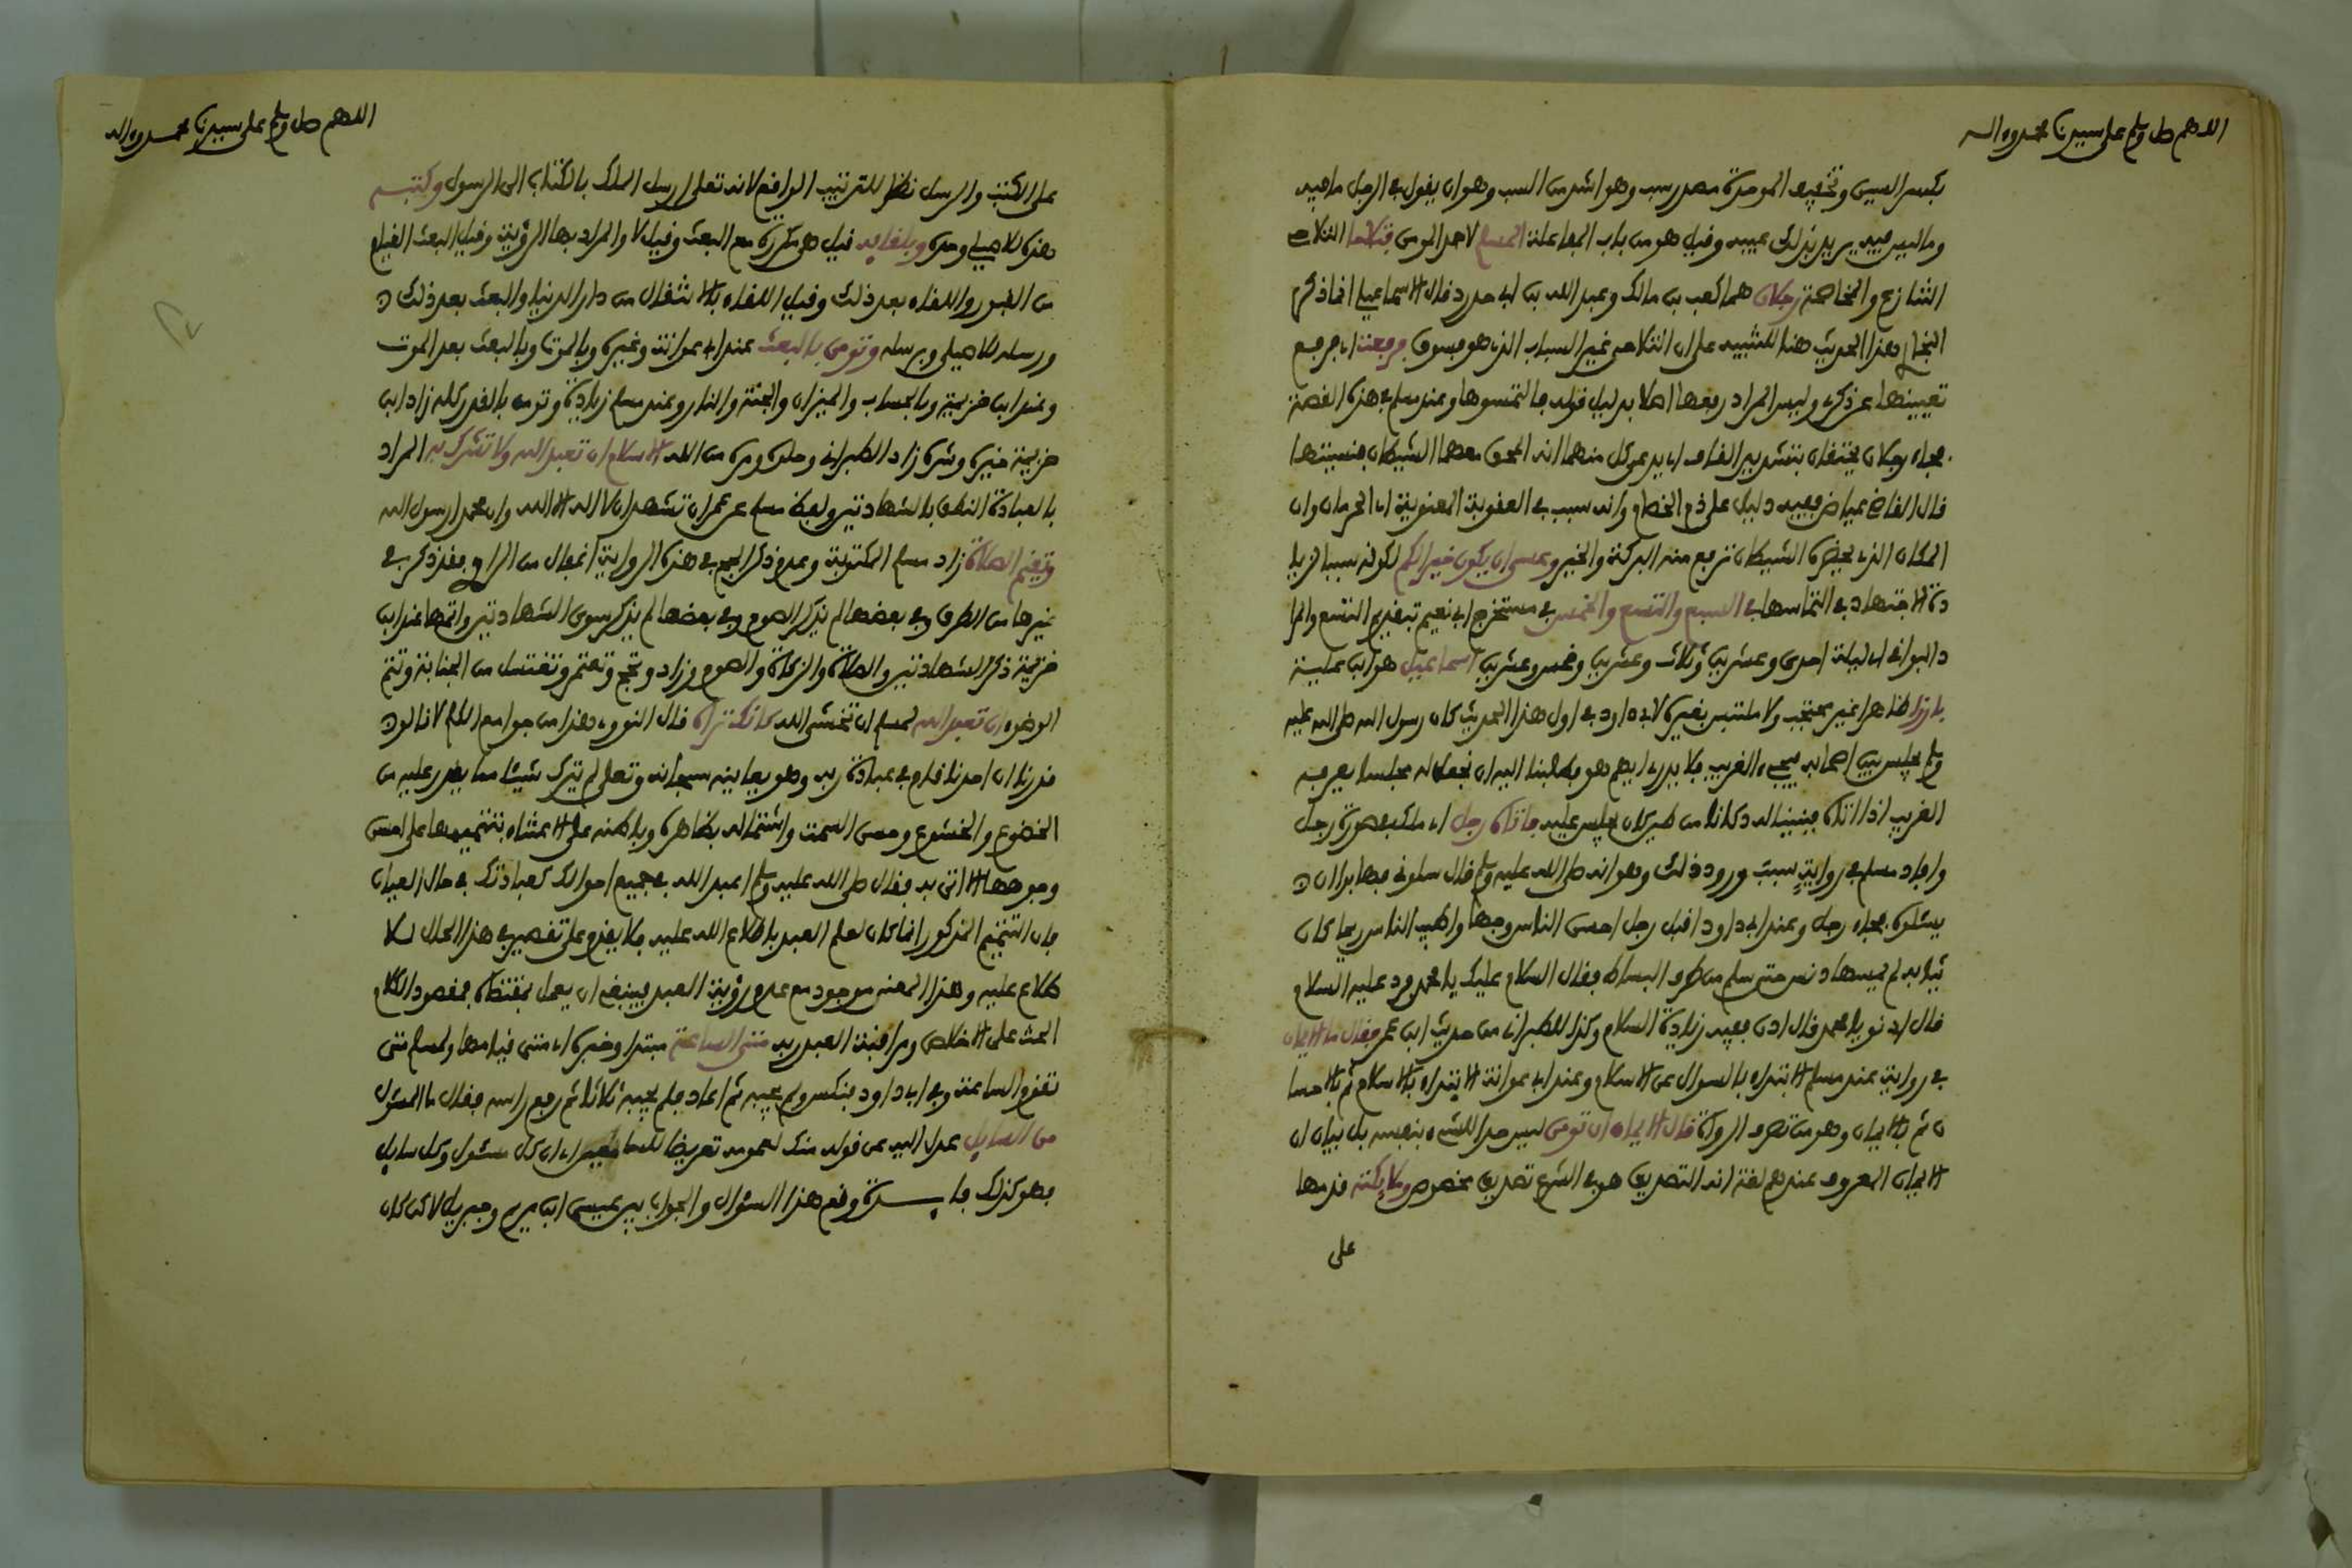 اللهم صل وسلم على سيدنا محمد وءاله
بكسر السين وتخفيف الموحدة مصدر سب وهو اشد من السب وهو ان يقول في الرجل ما فيه
وما ليس فيه يريد بذلك عيبه وقيل هو من باب المفاعلة المسلم لاحد المومن فتلاحا التلاحي
التنازع والمخاصمة رجلان هما كعب بن مالك وعبد الله بن ابي حدرد قال الاسماعيلي انما ذكر
البخاري هذا الحديث هنا للتنبيه على ان التلاحي غير السباب الذي هو فسوق فرفعت اي رفع
تعيينها عن ذكري وليس المراد رفعها اصلا بدليل قوله فالتمسوها وعند مسلم في هذه القصة
فجاء رجلان يحتقان بتشديد القاف اي يدعي كل منهما انه المحق معهما الشيطان فنسيتها
قال القاضي عياض فيه دليل على ذم الخصام وانه سبب في العقوبة المعنوية اي الحرمان وان
المكان الذي يحضره الشيطان ترفع منه البركة والخير وعسى ان يكون خيرا لكم لكونه سببا لزيا
دة الاجتهاد في التماسها في السبع والتسع والخمس في مستخرج ابي نعيم بتقديم التسع والمرا
د البواقي اي ليلة احدى وعشرين وثلاث وعشرين وخمس وعشرين اسماعيل هو ابن علية
بارزا ظاهرا غير محتجب ولا ملتبس بغيره لابي داود في اول هذا الحديث كان رسول الله صلى الله عليه
وسلم يجلس بين اصحابه فيجيء الغريب فلا يدري ايهم هو فطلبنا اليه ان نجعل له مجلسا يعرفه
الغريب اذا اتاه فبنينا له دكانا من طين كان يجلس عليه فاتاه رجل اي ملك في صورة رجل
وافاد مسلم في رواية سبب ورود ذلك وهو انه صلى الله عليه وسلم قال سلوني فهابوا ان
يسئلوه فجاء رجل وعند ابي داود اقبل رجل احسن الناس وجها واطيب الناس ريحا كان
ثيابه لم يمسها دنس حتى سلم من طرف البساط فقال السلام عليك يا محمد فرد عليه السلام
قال ادنو يا محمد قال ادن ففيه زيادة السلام وكذا للطبراني من حديث ابن عمر فقال ما الايمان
في رواية عند مسلم الابتداء بالسوال عن الاسلام وعند ابي عوانة الابتداء بالاسلام ثم بالاحسا
ن ثم بالايمان وهو من تصرف الرواة قال الايمان ان تومن ليس حدا للشيء بنفسه بل بيان ان
الايمان المعروف عندهم لغة انه التصديق هو في الشرع تصديق مخصوص وملايكته قدمها
على
اللهم صل وسلم على سيدنا محمد وءاله
على الكتب والرسل نظرا للترتيب الواقع لانه تعلى ارسل الملك بالكتاب الى الرسول وكتبه
هذه للاصيلي وحده وبلقايه قيل هو مكررة مع البعث وقيل لا والمراد بها الرؤية وقيل البعث القيام
من القبور واللقاء بعد ذلك وقيل اللقاء بالانتقال من دار الدنيا والبعث بعد ذلك
ورسله للاصيلي وبرسله وتومن بالبعث عند ابي عوانة وغيره وبالموت وبالبعث بعد الموت
وعند ابن خزيمة وبالحساب والميزان والجنة والنار وعند مسلم زيادة وتومن بالقدر كله زاد ابن
خزيمة خيره وشره زاد الطبراني وحلوه ومره من الله الاسلام ان تعبد الله ولا تشرك به المراد
بالعبادة النطق بالشهادتين ولفظ مسلم عن عمر ان تشهد ان لا اله الا الله وان محمدا رسول الله
وتقيم الصلاة زاد مسلم المكتوبة وعدم ذكر الحج في هذه الرواية اغفال من الراوي فقد ذكر في
غيرها من الطرق وفي بعضها لم يذكر الصوم وفي بعضها لم يذكر سوى الشهادتين واتمها عند ابن
خزيمة ذكر الشهادتين والصلاة والزكاة والصوم وزاد وتحج وتعتمر وتغتسل من الجنابة وتتم
الوضوء ان تعبد الله لمسلم ان تخشى الله كانك تراه قال النووي هذا من جوامع الكلم لانا لو
قدرنا ان احدنا قام في عبادة ربه وهو يعاينه سبحانه وتعلى لم يترك شيئا مما يقدر عليه من
الخضوع والخشوع وحسن السمت واشتماله بظاهره وباطنه على الاعتناء بتتميمها على احسن
وجوهها الا اتى به فقال صلى الله عليه وسلم اعبد الله في جميع احوالك كعبادتك في حال العيان
فان التتميم المذكور انما كان لعلم العبد باطلاع الله عليه فلا يقدم على تقصير في هذا الحال للا
طلاع عليه وهذا المعنى موجود مع عدم رؤية العبد فينبغي ان يعمل بمقتضاه فمقصود الكلام
الحث على الاخلاص ومراقبة العبد ربه متى الساعة مبتدا وخبره اي متى قيامها ولمسلم متى
تقوم الساعة وفي ابي داود فنكس ولم يجبه ثم اعاد فلم يجبه ثلاثا ثم رفع راسه فقال ما المسئول
من السايل عدل اليه عن قوله منك لعمومه تعريضا للسامعين اي ان كل مسئول وكل سايل
فهو كذلك فايدة وقع هذا السؤال والجواب بين عيسى ابن مريم وجبريل لاكن كان